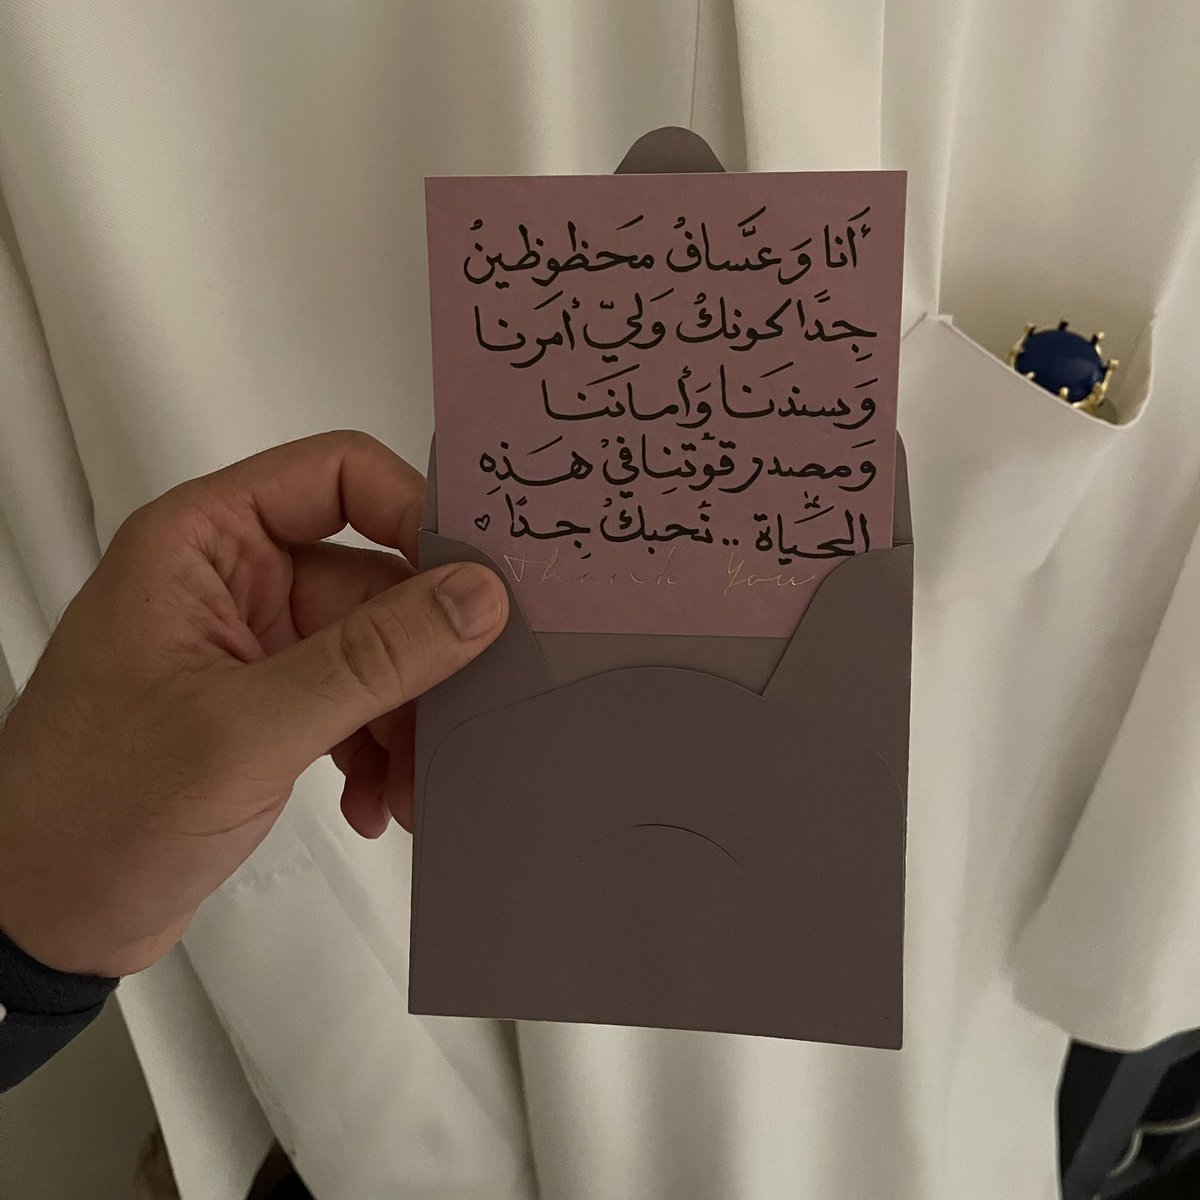 أَنا وَعسَّافُ مَحَظوظينُ
جِدًا كونكُ وَليّ أمرَنا
وَسندَنا وَأماننَا
وَمصدر قوّتنِا فيْ هَذهِ
الحَياة .. نُحبكُ جِدًا ♡
Thank You